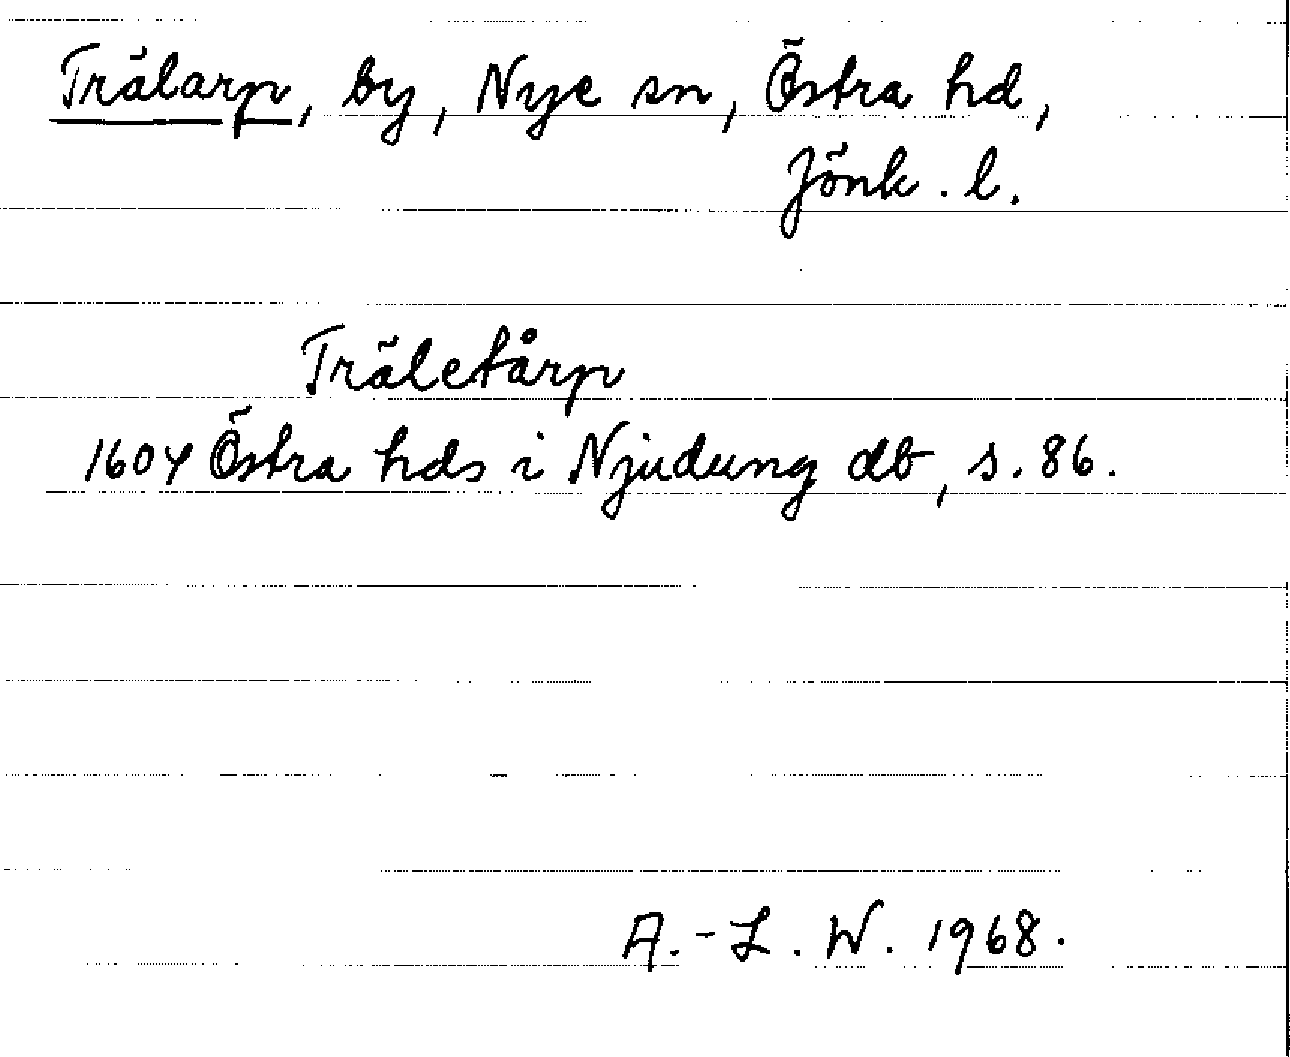 Trälarp, by, Nye sn, Östra hd,
Jönk. l.
Träletårp
1604 Östra hds i Njudung db, s. 86.
A.-L. W. 1968.